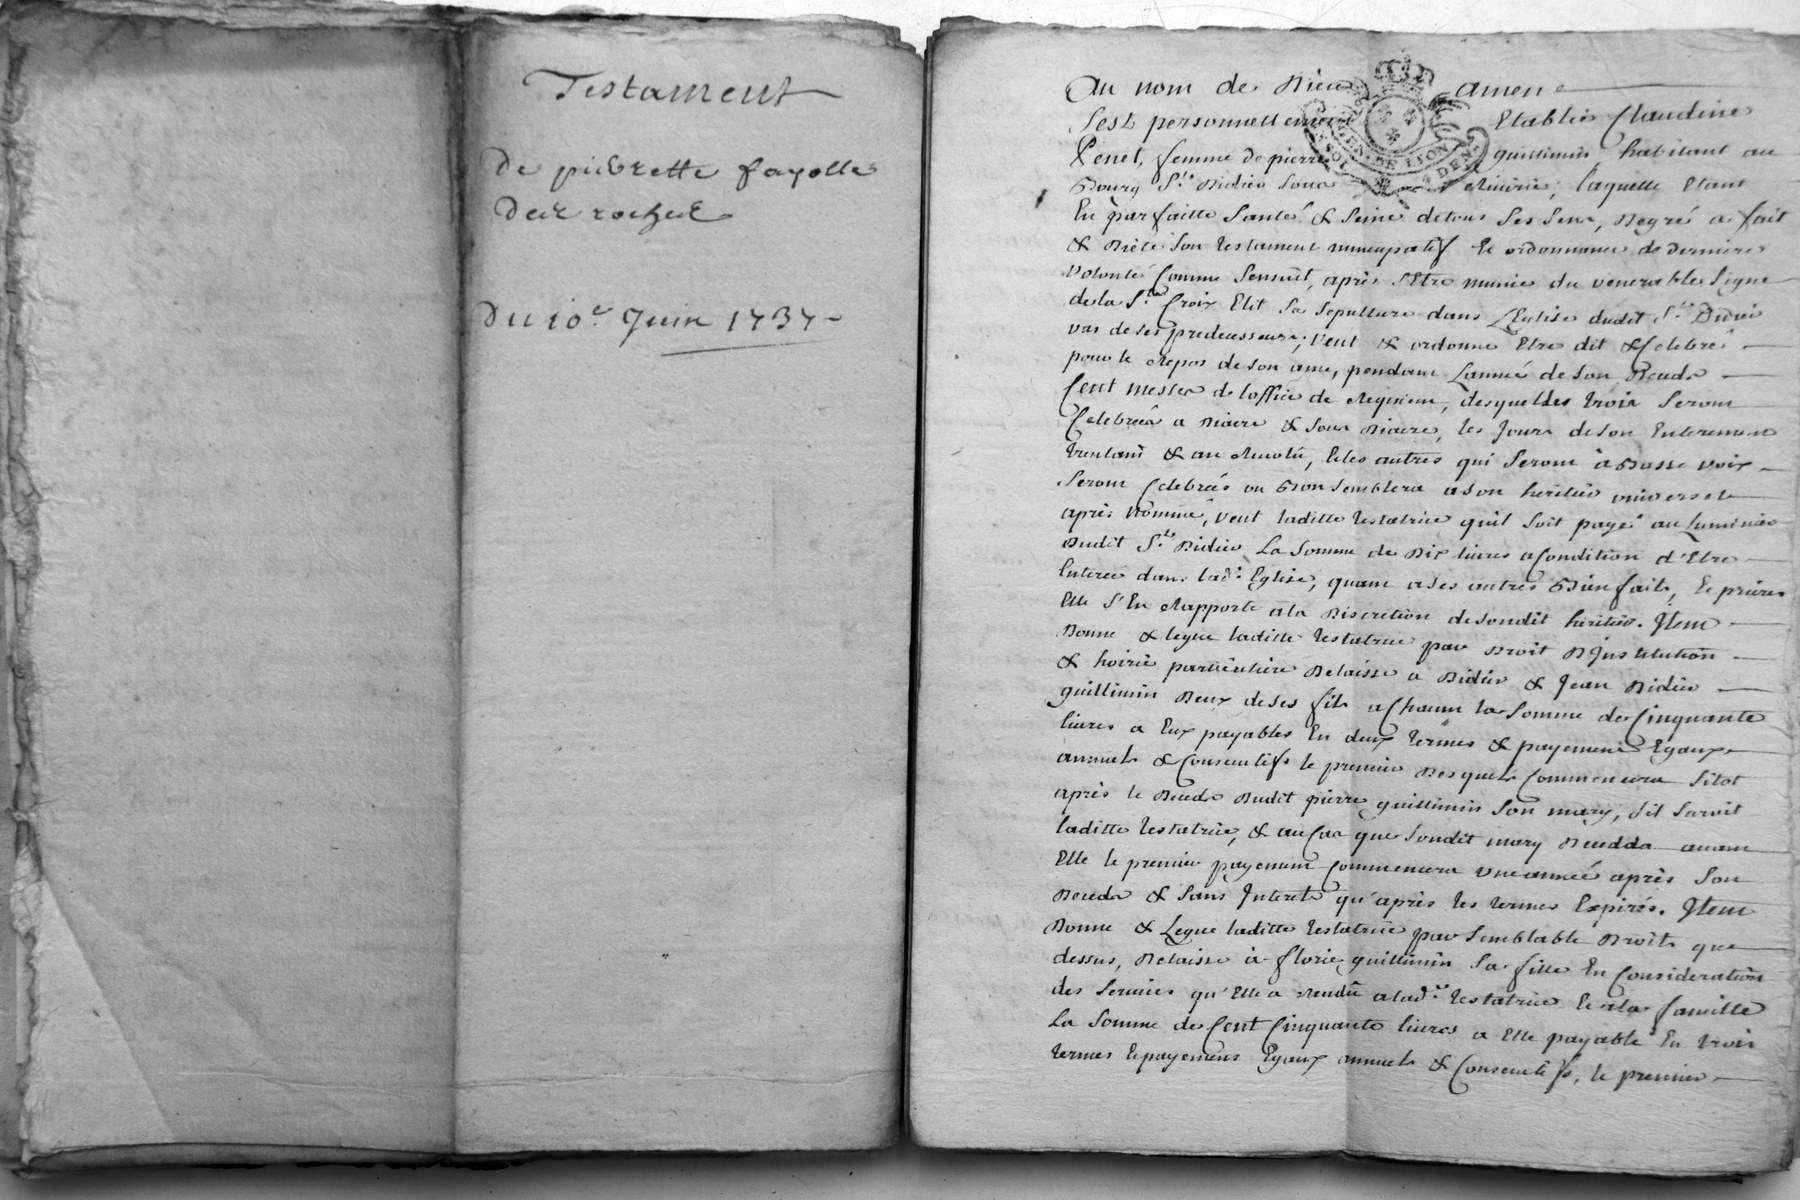 Testament
de pierrette fayolle
du 10e Juin 1737
Au nom de Dieu amen
GEN. DE LYON
4 DEN.
Sest personnellement Etablie Claudine
Penet, femme de pierre guillimin, habitant au
Bourg St. Didier sous Riuirie, laquelle Etant
En parfaitte Santé & Seine de tous Ses Sens, Degré a fait
& Dicté Son testament nuncupatif Et ordonnance de derniere
Volonté Comme Sensuit, apres S'Etre munie du venerable Signe
de la Ste. Croix Elit Sa Sepulture dans L'Eglise dudit St. Didier
vas de ses predecesseurs, Veut & ordonne Etre dit & Celebré
pour le Repos de son ame, pendant Lannée de Son Deceds
Cent messes de loffice de Requiem, desquelles trois Seront
Celebrées a Diacre & Sous Diacre, les Jours de Son Enterement
trentain & au Revolu, & les autres qui Seront à Basse voix
Seront Celebrées ou Bon Semblera a Son heritier universel
après Nommé, Veut laditte testatrice quil Soit payé au Luminier
Dudit St. Didier La Somme de Dix livres a Condition d'Etre
Enterée dans lade. Eglise, quant a Ses autres Bienfaits, & prieres
Elle S'En Rapporte à la Discretion de Sondit heritier. Item
Donne & legue laditte testatrice par Droit D'Institution
& hoirie particuliere Delaisse a Didier & Jean Didier
guillimin Deux de Ses fils a Chacun la Somme de Cinquante
livres a Eux payables En deux termes & payements Egaux
annuels & Consecutifs le premier Desquels Commencera Sitot
après le Deceds Dudit pierre guillimin Son mary, S'il Survit
laditte testatrice, & au Cas que Sondit mary Deceda avant
Elle le premier payement Commencera Une année après Son
Deceds & Sans Interets qu'après les termes Expirés. Item
Donne & Legue laditte testatrice par Semblable Droit que
dessus, Delaisse à florie guillimin Sa fille En Consideration
des Services qu'Elle a Rendu a lade. testatrice & a la famille
La Somme de Cent Cinquante livres a Elle payable En trois
termes & payemens Egaux annuels & Consecutifs, le premier